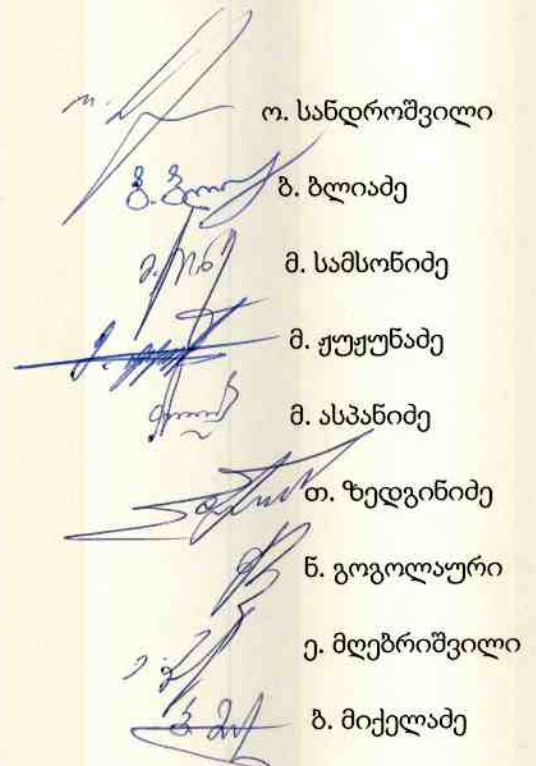 ო. სანდროშვილი
ბ. ბლიაძე
მ. სამსონიძე
მ. ჟუჟუნაძე
მ. ასპანიძე
თ. ზედგინიძე
ნ. გოგოლაური
ე. მღებრიშვილი
ბ. მიქელაძე